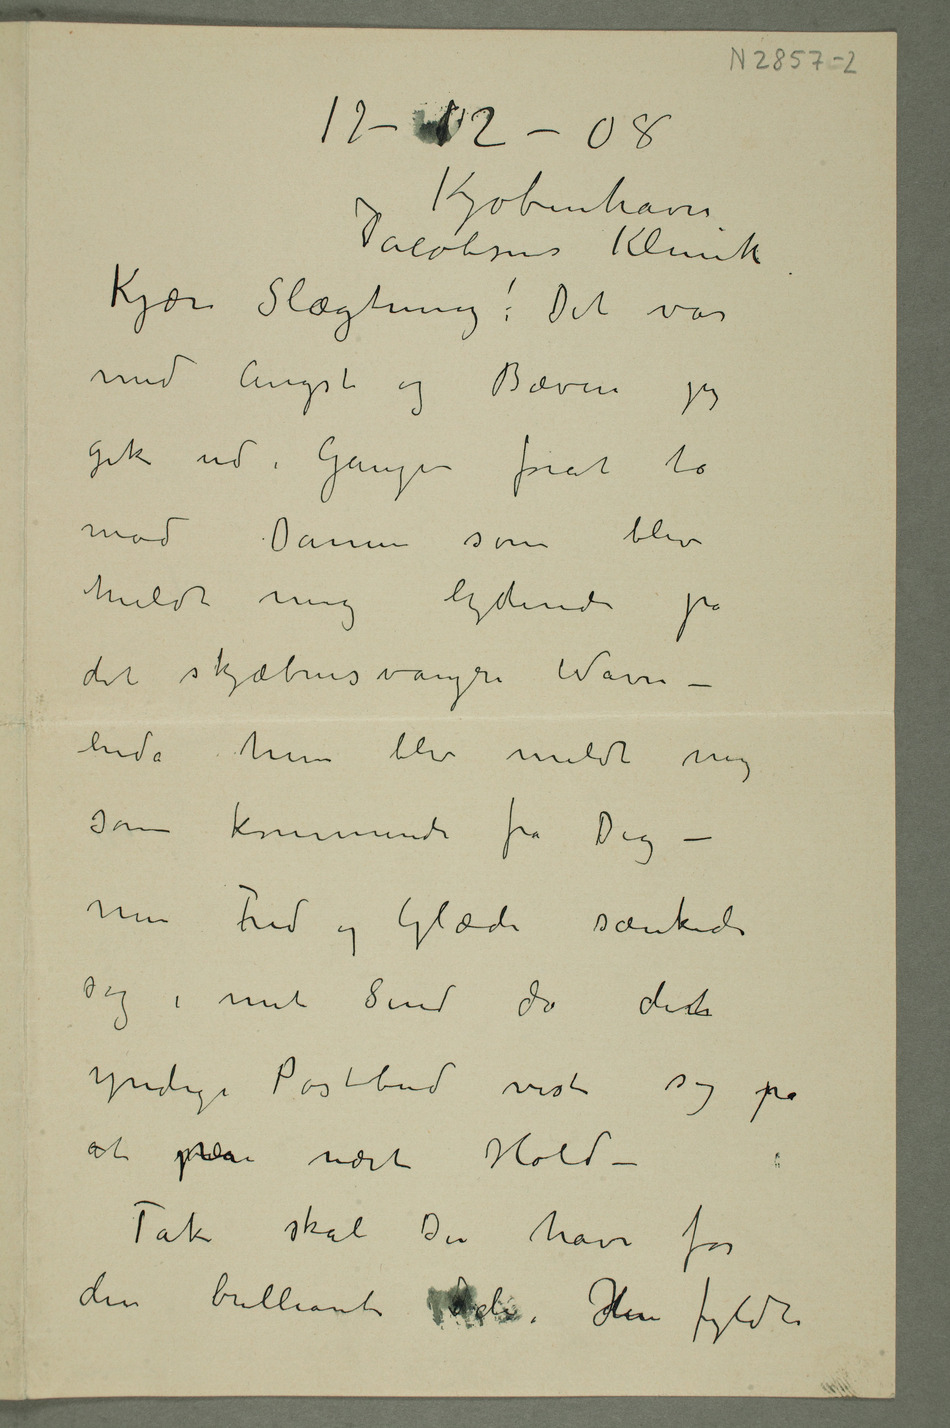 N 2857-2
12 – 12 – 08
Kjøbenhavn
Jacobsens Klinik
Kjære Slægtning! Det var
med Angst og Bæven jeg
gik ud i Gangen forat ta
mod Damen som blev
meldt mig lydende på
det skjæbnesvangre Navn –
enda hun blev meldt mig
som kommende fra Dig –
men Fred og Glæde sænkede
sig i mit Sind da det
yndige Postbud viste sig på
at nært Hold –
Tak skal Du have for
den brilliante Ide. Den fyldte